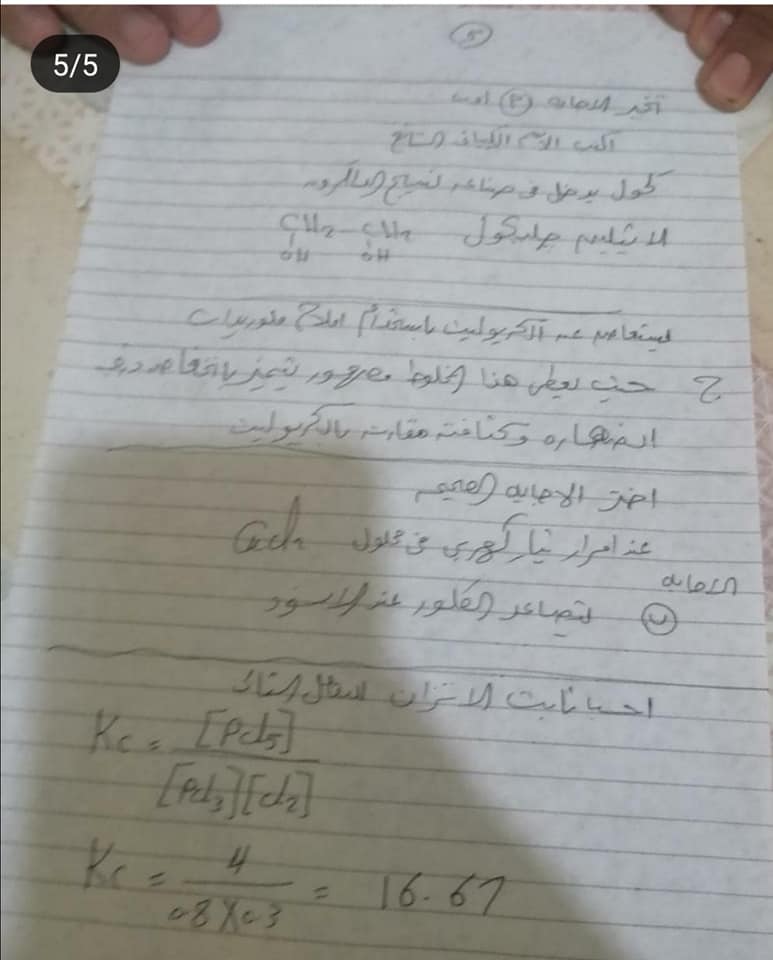 5/5
5
تخير الاجابة (P) أو ب
اكتب الاسم الكيميائى
كحول يدخل فى صناعة نسيج الداكرون
الاثيلين جليكول CH2 - CH2
OH OH
يستعاض عن الكريوليت باستخدام املاح فلوريدات
ج حيث يعطى هذا الخلوط مصهور يتميز بانخفاض درجة
انصهاره وكثافته مقارنة بالكريوليت
اختر الاجابة الصحيحه
عند امرار تيار كهربي فى محلول
الاجابة
ب يتصاعد الكلور عند الانود
احسب ثابت الاتزان للتفاعل التالى
Kc = [PCl5]
[PCl3][Cl2]
Kc = 4 = 16.67
0.8 X 0.3